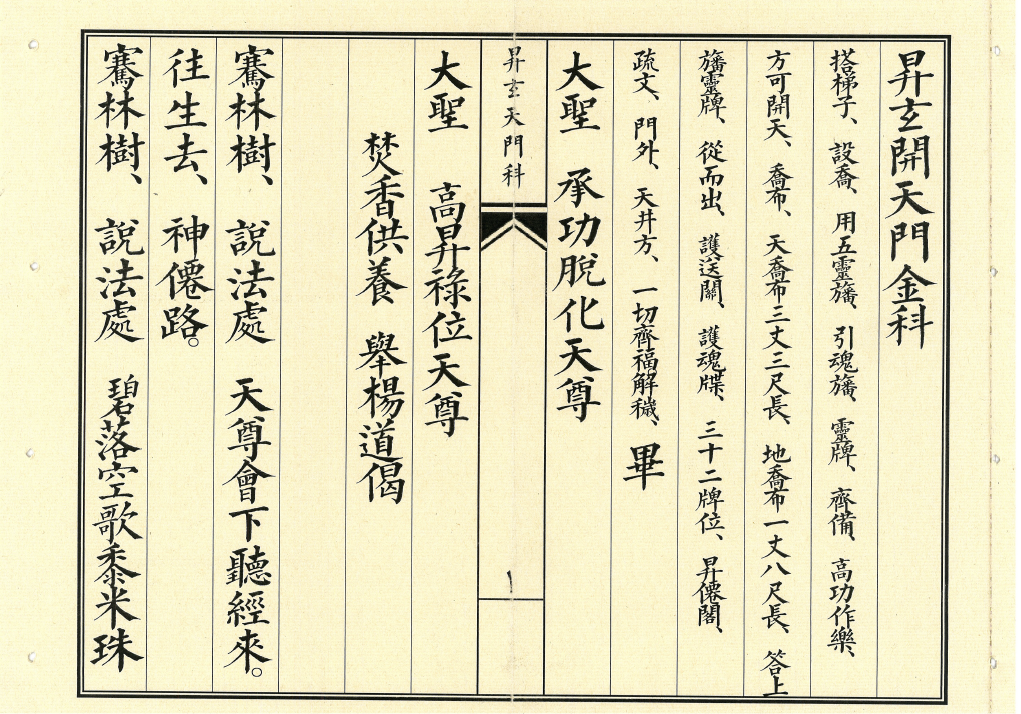 昇玄開天門金科
搭梯子、設喬、用五靈旛、引魂旛、靈牌、齊備、高功作樂、
方可開天、喬布、天喬布三丈三尺長、地喬布一丈八尺長、答上
旛靈牌、從而出、護送關、護魂牒、三十二牌位、昇僊閣、
疏文、門外、天井方、一切齊福解穢、畢
大聖 承功脫化天尊
昇玄天門科
一
大聖 高昇祿位天尊
焚香供養 舉楊道偈
騫林樹、說法處 天尊會下聽經來。
往生去、神僊路。
騫林樹、說法處 碧落空歌黍米珠